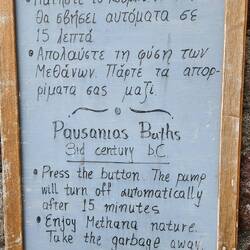 • Πατήστε το
θα σβήσει αυτόματα σε
15 λεπτά
• Απολαύστε τη φύση των
Μεθάνων. Πάρτε τα απορ-
ρίματα σας μαζί.
Pausanias Baths
3rd century b.C
• Press the button. The pump
will turn off automatically
after 15 minutes
• Enjoy Methana nature.
Take the garbage away.